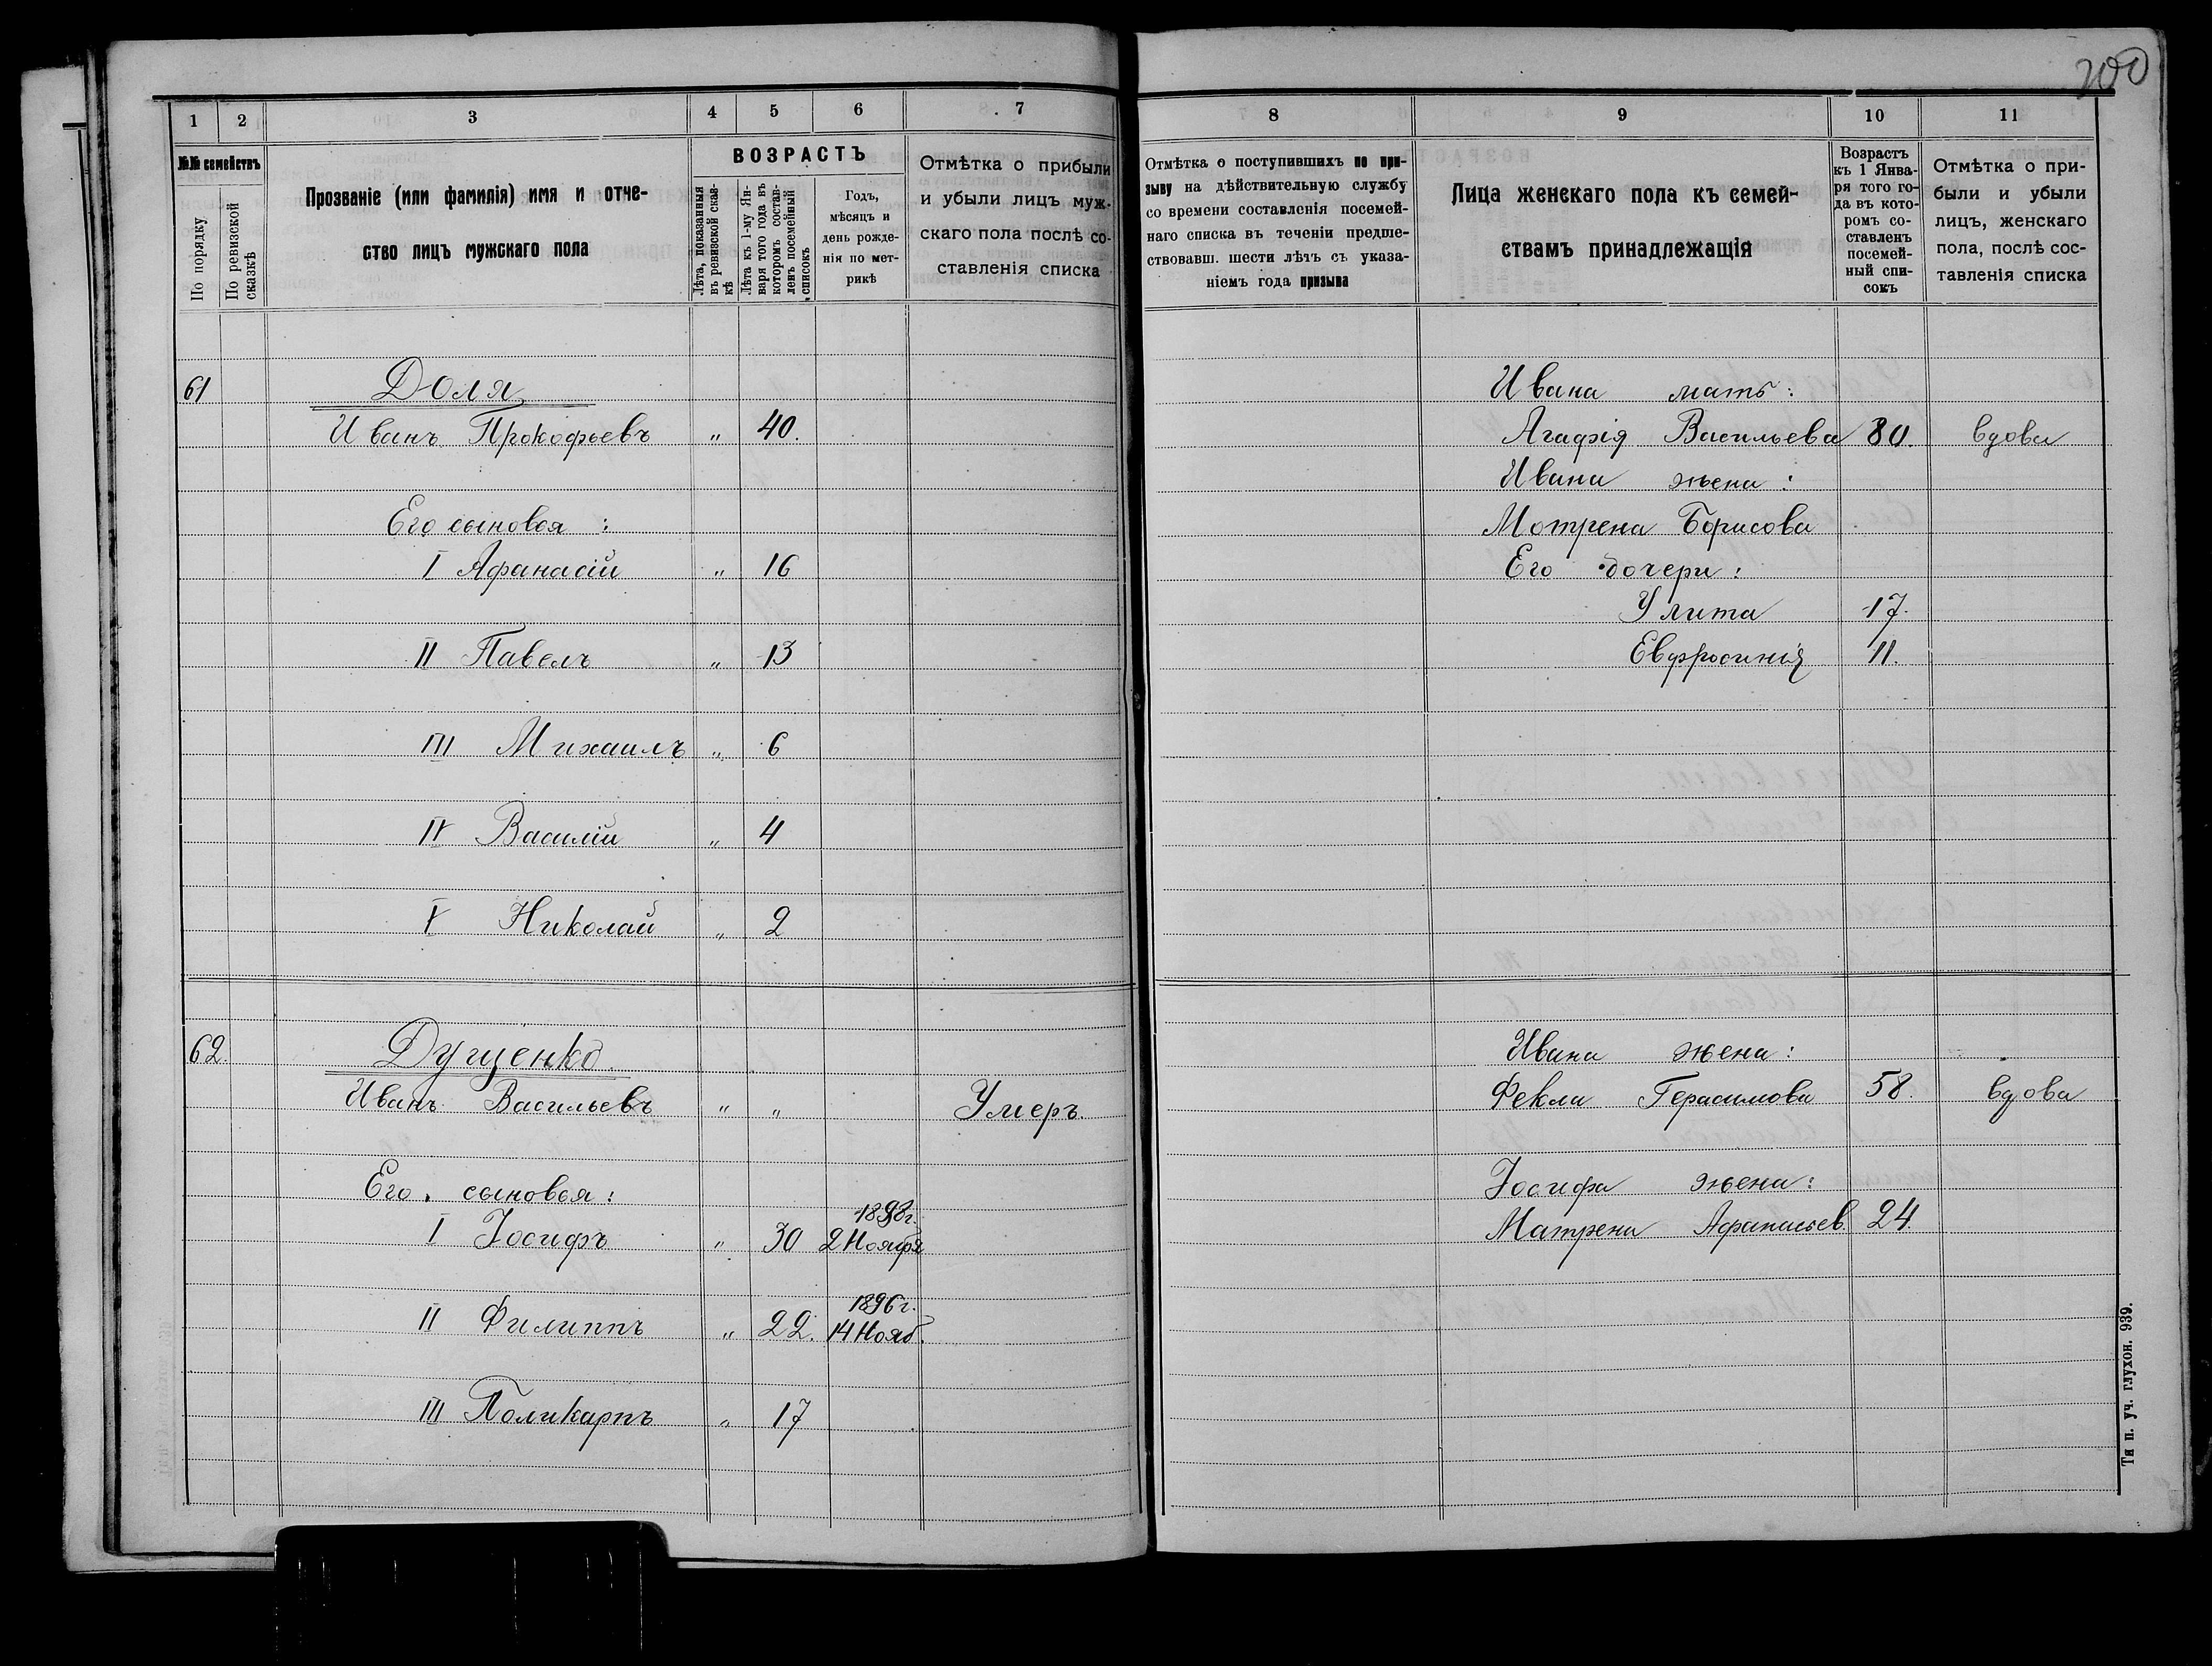 200
1 2 3 4 5 6 7
№№ семействъ
По порядку
По ревизской сказкѣ
Прозваніе (или фамилія) имя и отче-
ство лицъ мужскаго пола
ВОЗРАСТЪ
Лѣта, показанныя
въ ревизской сказ-
кѣ
Лѣта къ 1-му Ян-
варя того года въ
которомъ состав-
ленъ посемейный
списокъ
Годъ,
мѣсяцъ и
день рожде-
нія по мет-
рикѣ
Отмѣтка о прибыли
и убыли лицъ муж-
скаго пола послѣ со-
ставленія списка
61 Доля
Иванъ Прокофьевъ " 40.
Его сыновья :
I Афанасій " 16
II Павелъ " 13
III Михаилъ " 6
IV Василій " 4
V Николай " 2
62. Дущенко.
Иванъ Васильевъ " " Умеръ.
Его сыновья :
1898г.
I Іосифъ " 30 2 Ноября
1896г.
II Филиппъ " 22. 14 Нояб.
III Поликарпъ " 17
8 9 10 11
Отмѣтка о поступившихъ по при-
зыву на дѣйствительную службу
со времени составленія посемей-
наго списка въ теченіи предше-
ствовавш. шести лѣтъ съ указа-
ніемъ года призыва
Лица женскаго пола къ семей-
ствамъ принадлежащія
Возрастъ
къ 1 Янва-
ря того го-
да въ кото-
ромъ со-
ставленъ
посемей-
ный спи-
сокъ
Отмѣтка о при-
были и убыли
лицъ, женскаго
пола, послѣ сос-
тавленія списка
Ивана мать :
Агафія Васильева 80. вдова
Ивана жена :
Мотрена Борисова
Его дочери :
Улита 17.
Евфросинія 11.
Ивана жена :
Фекла Герасимова 58. вдова
Іосифа жена :
Матрена Афанасьев. 24.
Ти п. уч. глухон. 939.